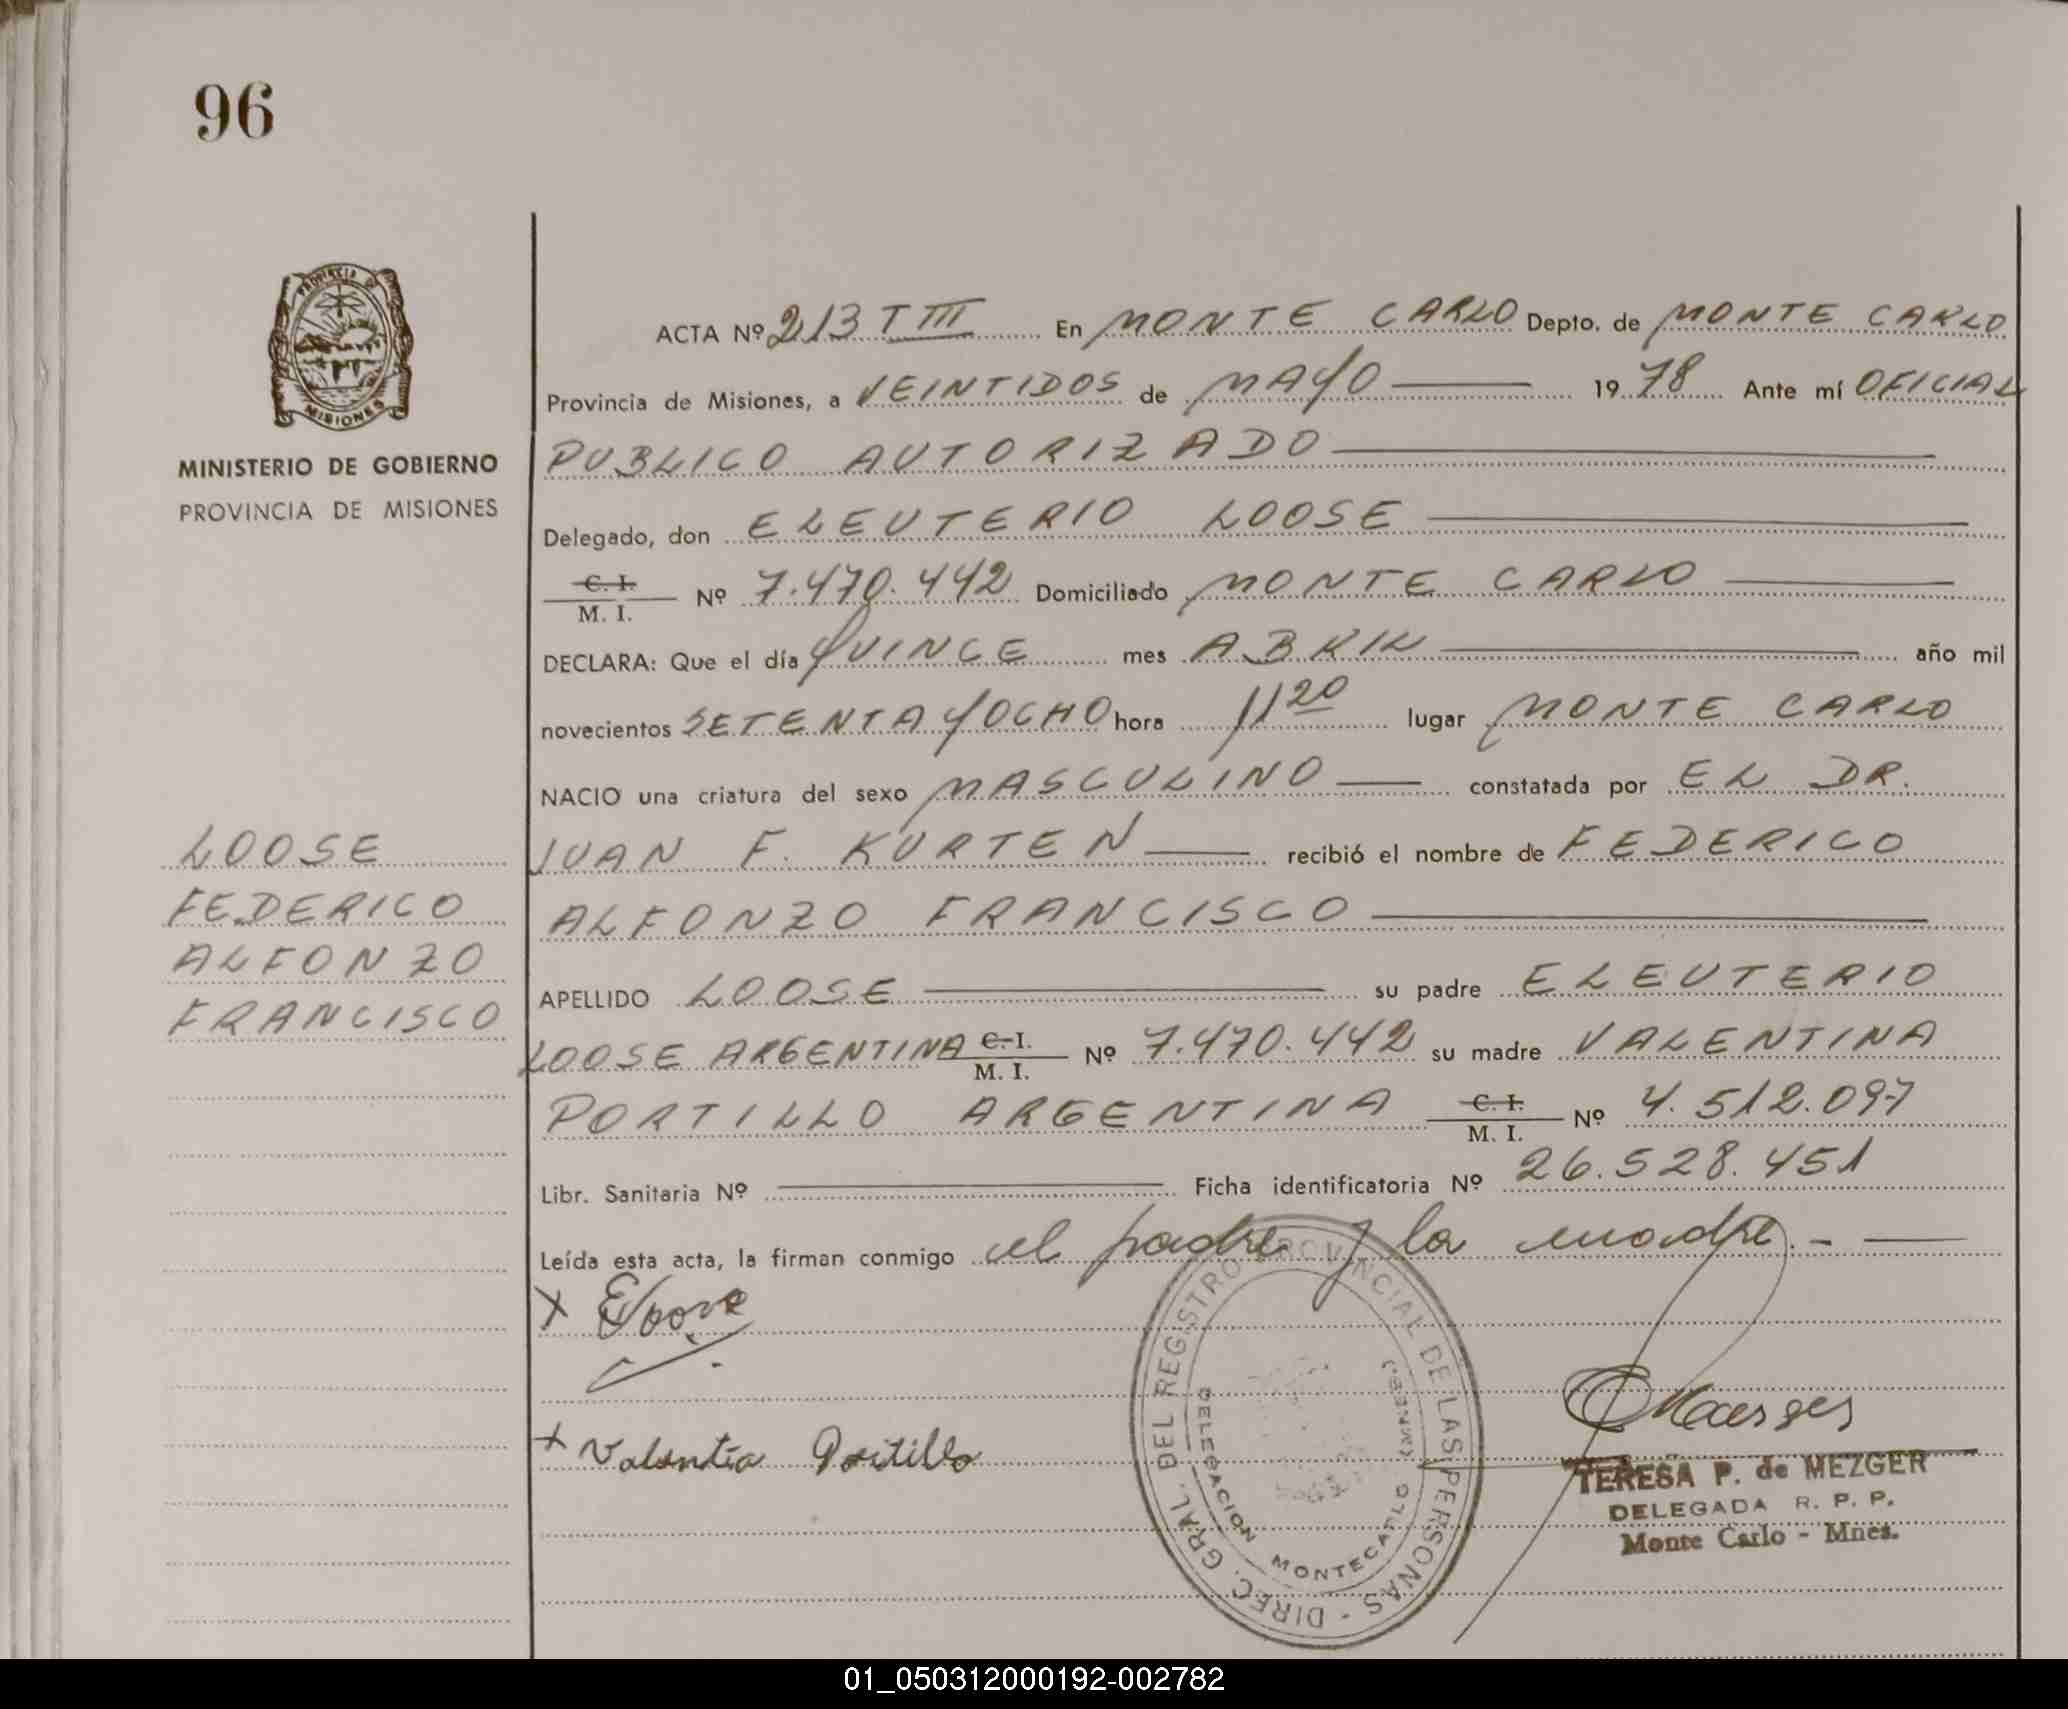 96
PROVINCIA DE
MISIONES
MINISTERIO DE GOBIERNO
PROVINCIA DE MISIONES
LOOSE
FEDERICO
ALFONZO
FRANCISCO
ACTA Nº 213 T III En MONTE CARLO Depto. de MONTE CARLO
Provincia de Misiones, a VEINTIDOS de MAYO 1978 Ante mí OFICIAL
PUBLICO AUTORIZADO
Delegado, don ELEUTERIO LOOSE
C. I.
M. I. Nº 7.470.442 Domiciliado MONTE CARLO
DECLARA: Que el día QUINCE mes ABRIL año mil
novecientos SETENTA YOCHO hora 11 20 lugar MONTE CARLO
NACIO una criatura del sexo MASCULINO constatada por EL DR.
JUAN F. KURTEN recibió el nombre de FEDERICO
ALFONZO FRANCISCO
APELLIDO LOOSE su padre ELEUTERIO
LOOSE ARGENTINA C. I. Nº 7.470.442 su madre VALENTINA
M. I.
PORTILLO ARGENTINA C. I. Nº 4.512.097
M. I.
Libr. Sanitaria Nº Ficha identificatoria Nº 26.528.451
Leída esta acta, la firman conmigo el padre y la madre.-
X
+ Valentia Portillo
DIREC. GRAL. DEL REGISTRO PROVINCIAL DE LAS PERSONAS -
DELEGACION MONTECARLO (MNES.)
TERESA P. de MEZGER
DELEGADA R. P. P.
Monte Carlo - Mnes.
01_050312000192-002782